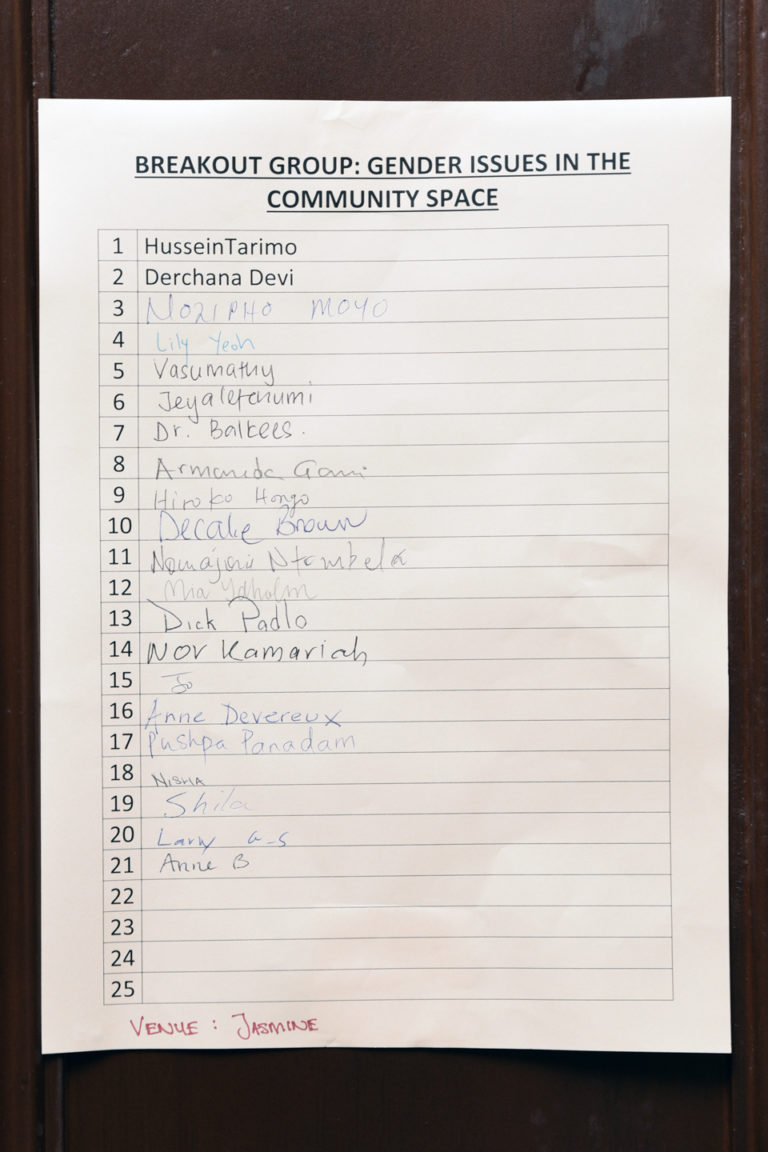 BREAKOUT GROUP: GENDER ISSUES IN THE
COMMUNITY SPACE
1 HusseinTarimo
2 Derchana Devi
3 NOZIPHO MOYO
4 Lily Yeoh
5 Vasumathy
6 Jeyaletchumi
7 Dr. Balkees.
8 Armanda Gani
9 Hiroko Hongo
10 Decake Brown
11 Nomajoni Ntombela
12 Mia Ydholm
13 Dick Padlo
14 Nor Kamariah
15 Jo
16 Anne Devereux
17 Pushpa Panadam
18 NISHA
19 Shila
20 Larry G-S
21 Anne B
22
23
24
25
VENUE : JASMINE